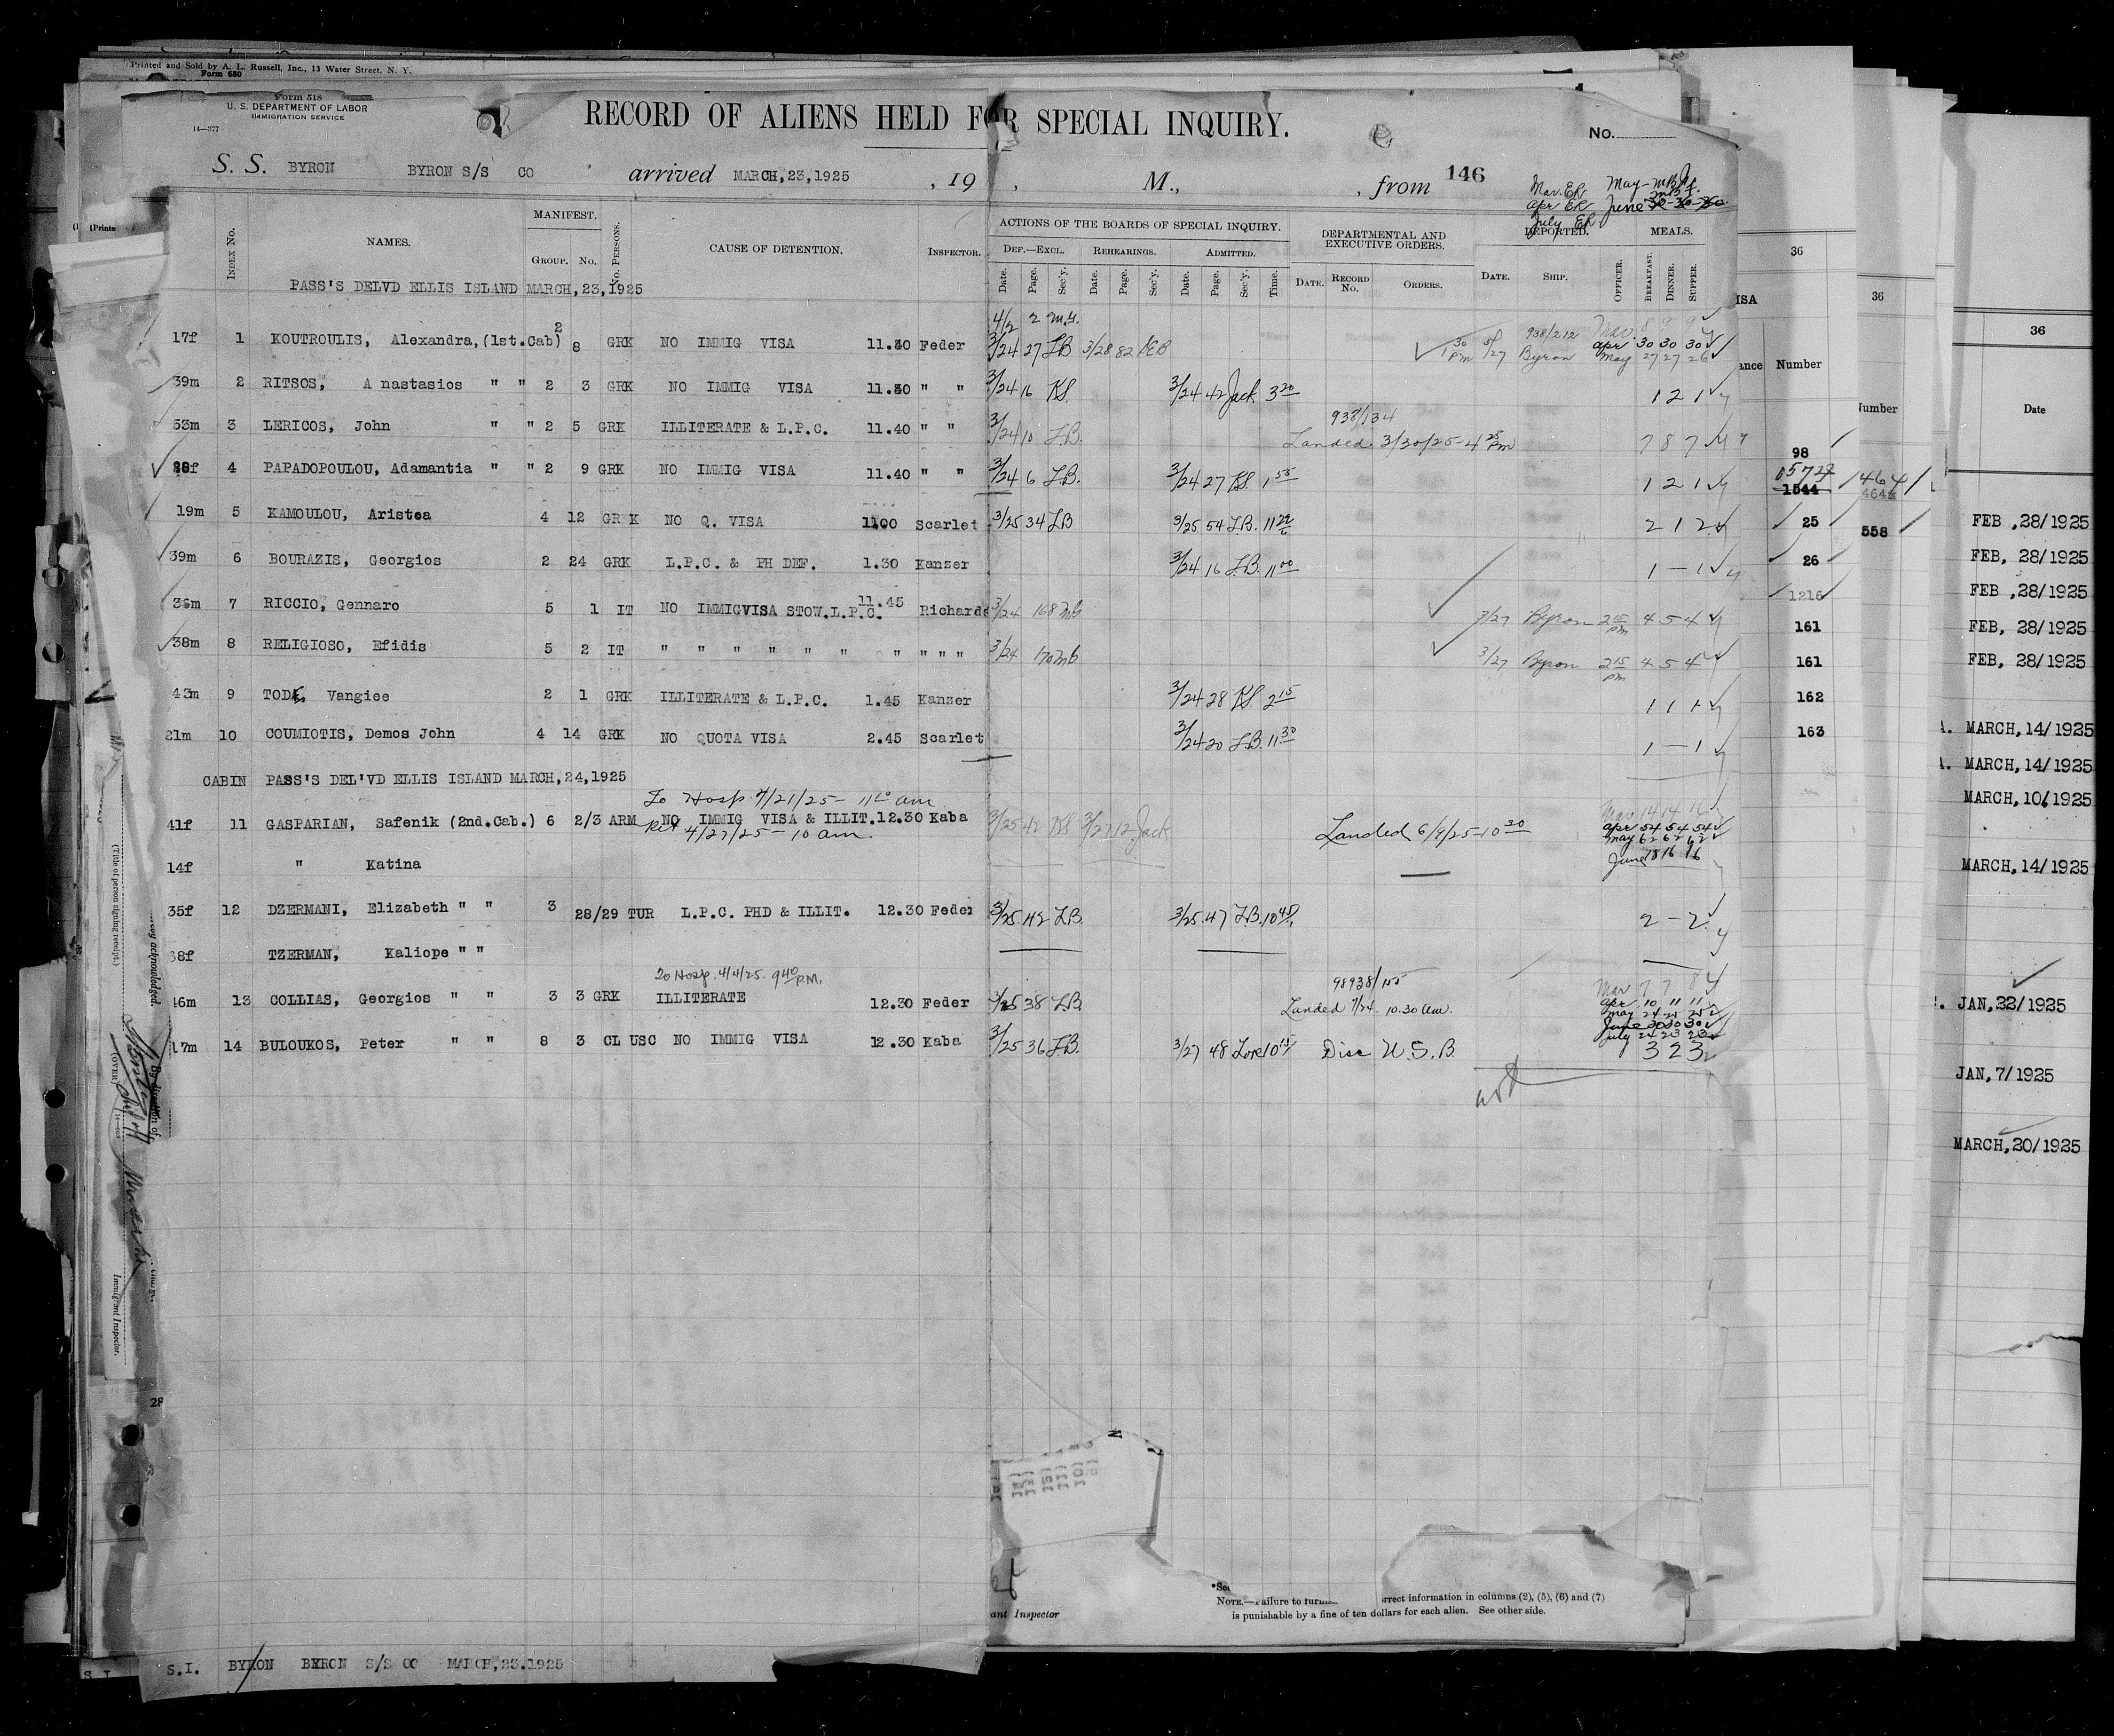 Printed and Sold by A. L. Russell, Inc., 13 Water Street, N. Y.
Form 680
Form 518
U. S. DEPARTMENT OF LABOR
IMMIGRATION SERVICE
14—377
RECORD OF ALIENS HELD FOR SPECIAL INQUIRY.
No.
S. S. BYRON BYRON S/S CO arrived MARCH,23,1925 , 19 , M., , from 146
Mar. ER May - MB
Apr ER June 30-30-30
July ER
INDEX No. NAMES. MANIFEST. GROUP. No. No. PERSONS. CAUSE OF DETENTION. INSPECTOR.
ACTIONS OF THE BOARDS OF SPECIAL INQUIRY. DEPARTMENTAL AND EXECUTIVE ORDERS. DEPORTED. MEALS.
DEF.—EXCL. REHEARINGS. ADMITTED.
Date. Page. Sec'y. Date. Page. Sec'y. Date. Page. Sec'y. Time. DATE. RECORD No. ORDERS. DATE. SHIP. OFFICER. BREAKFAST. DINNER. SUPPER.
PASS'S DELVD ELLIS ISLAND MARCH,23,1925
4/2 2 M.Y.
17f 1 KOUTROULIS, Alexandra,(1st.Cab) 2 8 GRK NO IMMIG VISA 11.40 Feder 3/24 27 LB 3/28 82 1 30 PM 5/27 938/212 Byron Mar. 8 9 9
Apr 30 30 30
May 27 27 26
39m 2 RITSOS, Anastasios " " 2 3 GRK NO IMMIG VISA 11.30 " " 3/24 16 KS. 3/24 42 Jack 3 20 1 2 1
938/134
53m 3 LERICOS, John " " 2 5 GRK ILLITERATE & L.P.C. 11.40 " " 3/24 10 LB. Landed 3/30/25 - 4 25 PM 7 8 7
28f 4 PAPADOPOULOU, Adamantia " " 2 9 GRK NO IMMIG VISA 11.40 " " 3/24 6 LB. 3/24 27 KS. 1 55 1 2 1
19m 5 KAMOULOU, Aristea 4 12 GRK NO Q. VISA 1100 Scarlet 3/25 34 LB 3/25 54 LB. 11 22 2 1 2
39m 6 BOURAZIS, Georgios 2 24 GRK L.P.C. & PH DEF. 1.30 Kanzer 3/24 16 LB. 11 00 1 - 1
36m 7 RICCIO, Gennaro 5 1 IT NO IMMIGVISA STOW.L.P.C. 11.45 Richards 3/24 168 Mb 3/27 Byron 2 15 PM 4 5 4
38m 8 RELIGIOSO, Efidis 5 2 IT " " " " " " " " " " 3/24 170 Mb 3/27 Byron 2 15 PM 4 5 4
43m 9 TODE, Vangiee 2 1 GRK ILLITERATE & L.P.C. 1.45 Kanzer 3/24 28 KS 2 15 1 1 1
21m 10 COUMIOTIS, Demos John 4 14 GRK NO QUOTA VISA 2.45 Scarlet 3/24 20 LB. 11 30 1 - 1
CABIN PASS'S DEL'VD ELLIS ISLAND MARCH,24,1925
To Hosp. 4/21/25 - 11 am
41f 11 GASPARIAN, Safenik (2nd.Cab.) 6 2/3 ARM NO IMMIG VISA & ILLIT. 12.30 Kaba 3/25 42 KS 3/27 12 Jack Landed 6/9/25-10 30 Mar 14 14 16
Ret 4/27/25 - 10 am. Apr 54 54 54
May 62 62 62
14f " Katina June 18 16 16
35f 12 DZERMANI, Elizabeth " " 3 28/29 TUR L.P.C. PHD & ILLIT. 12.30 Feder 3/25 42 LB. 3/25 47 LB. 10 45 2 - 2
38f TZERMAN, Kaliope " "
To Hosp. 4/4/25. 9 40 P.M. 98938/155
46m 13 COLLIAS, Georgios " " 3 3 GRK ILLITERATE 12.30 Feder 3/25 38 LB. Landed 7/24 - 10.30 am. Mar 7 7 8
Apr 10 11 11
May 24 25 25
June 30 30 30
July 24 23 23
17m 14 BULOUKOS, Peter " " 8 3 CL USC NO IMMIG VISA 12.30 Kaba 3/25 36 LB. 3/27 48 Lore 10 15 Disc U. S. B. 3 2 3
36
ISA
ance Number
98
6572
1544
25
26
1216
161
161
162
163
36
Number
1464
464
558
36
Date
FEB ,28/1925
FEB, 28/1925
FEB ,28/1925
FEB, 28/1925
FEB, 28/1925
A. MARCH,14/1925
A. MARCH,14/1925
MARCH,106/1925
MARCH,14/1925
JAN,22/1925
JAN,7/1925
MARCH,20/1925
(Title of person signing receipt.)
acknowledged.
By direction of
(OVER)
Immigrant Inspector.
28
ant Inspector
NOTE.—Failure to furni rrect information in columns (2), (5), (6) and (7)
is punishable by a fine of ten dollars for each alien. See other side.
S.I. BYRON BYRON S/S CO MARCH,23.1925
S I